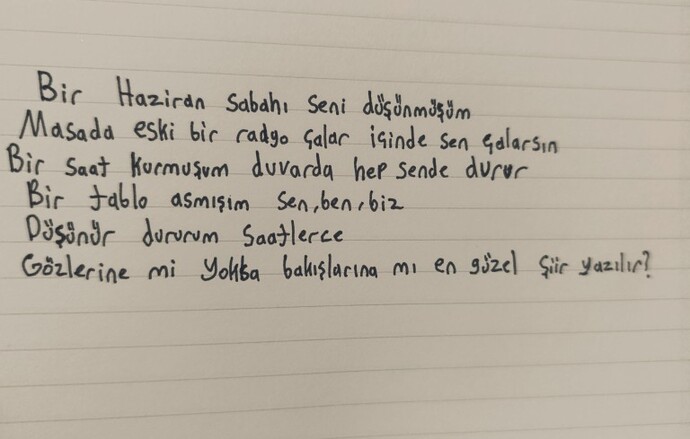 Bir Haziran sabahı seni düşünmüşüm
Masada eski bir radyo çalar içinde sen çalarsın
Bir saat kurmuşum duvarda hep sende durur
Bir tablo asmışım sen, ben, biz
Düşünür dururum saatlerce
Gözlerine mi yoksa bakışlarına mı en güzel şiir yazılır?